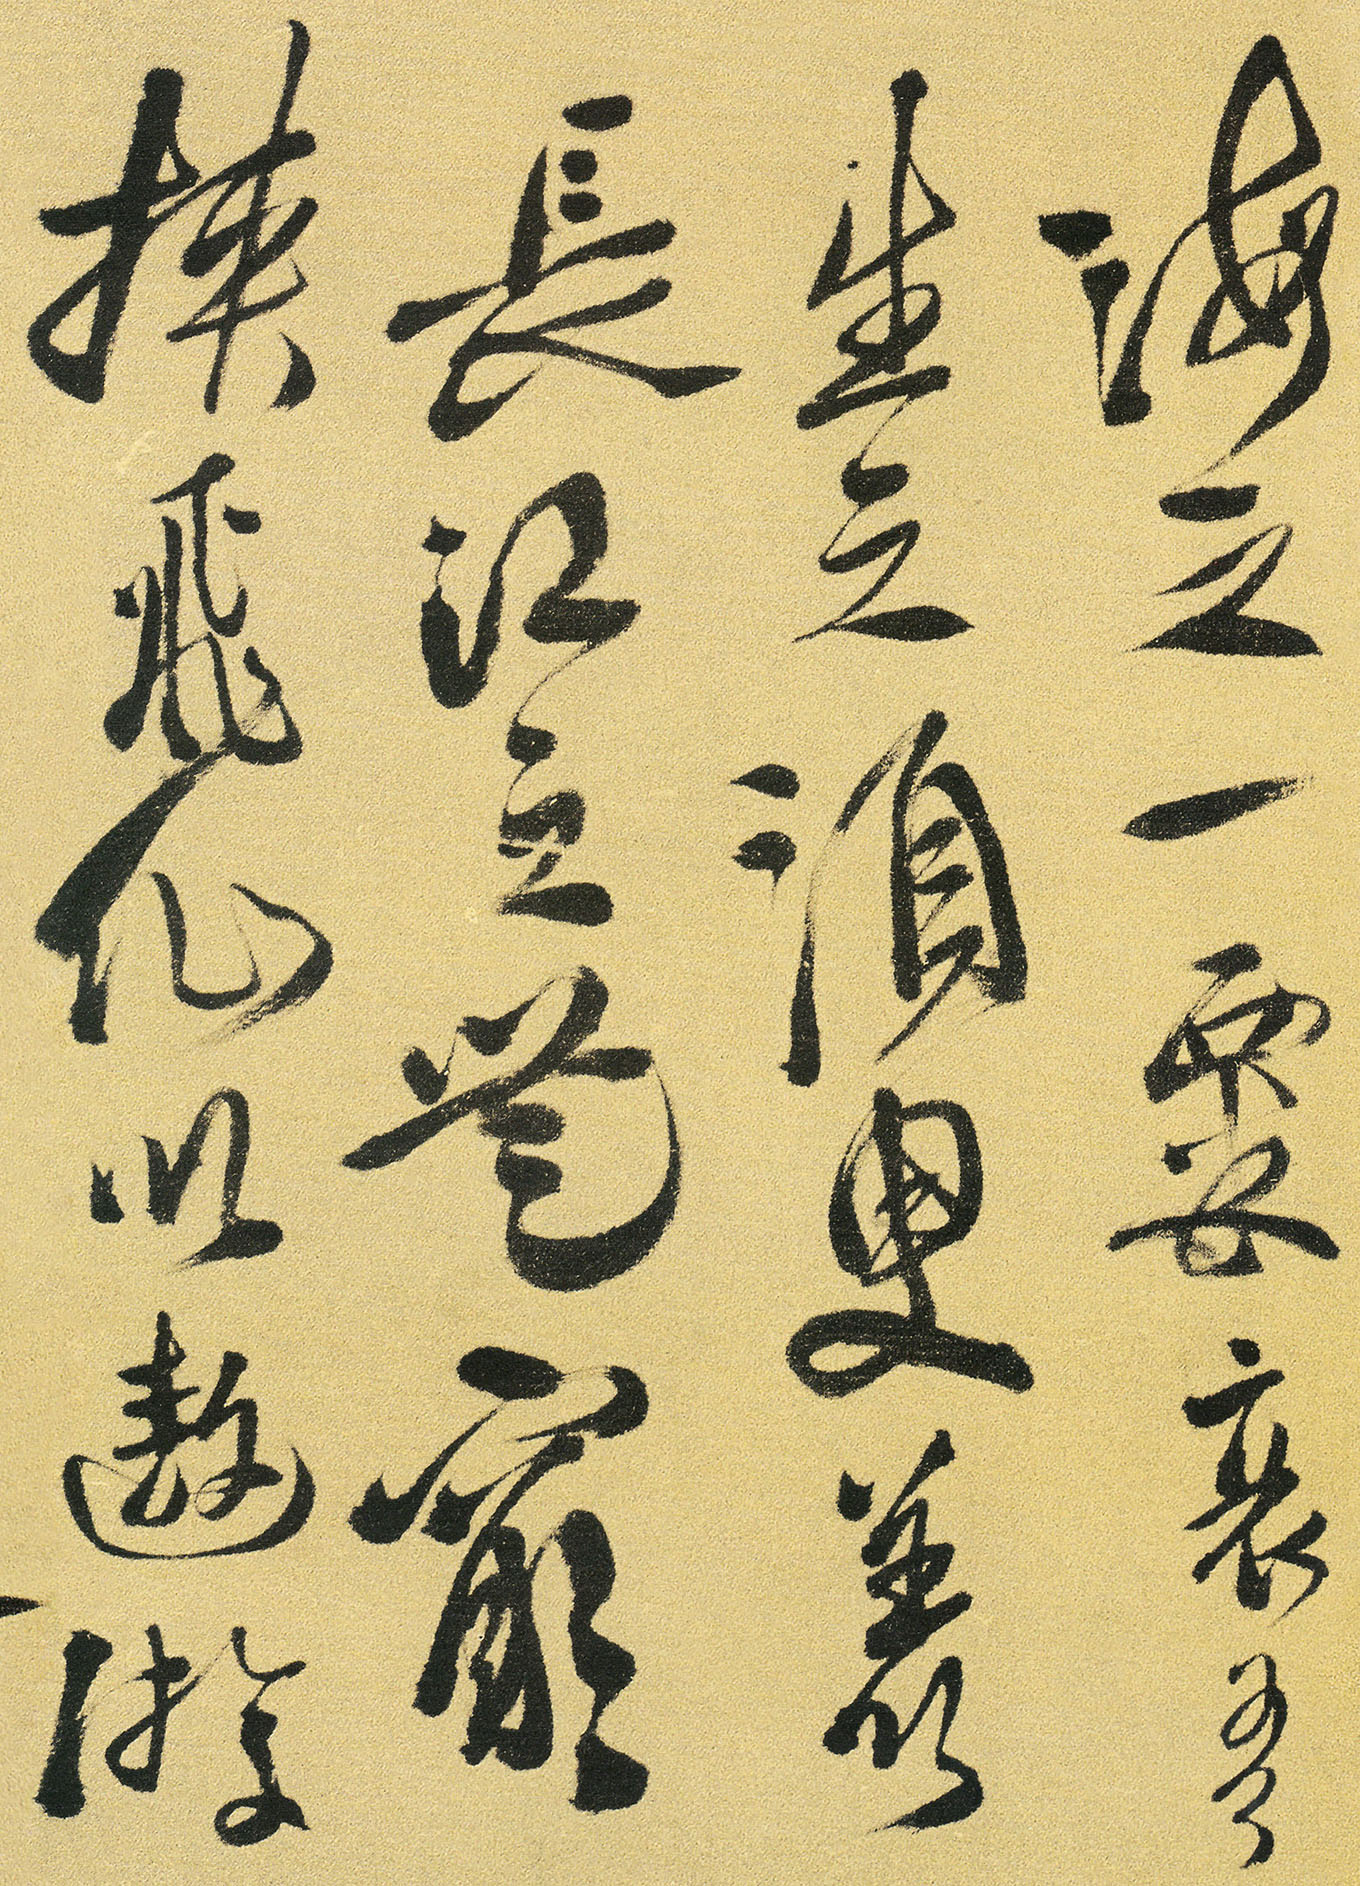 海之一粟哀吾
生之須臾羨
長江之無窮
挾飛仙以遨游